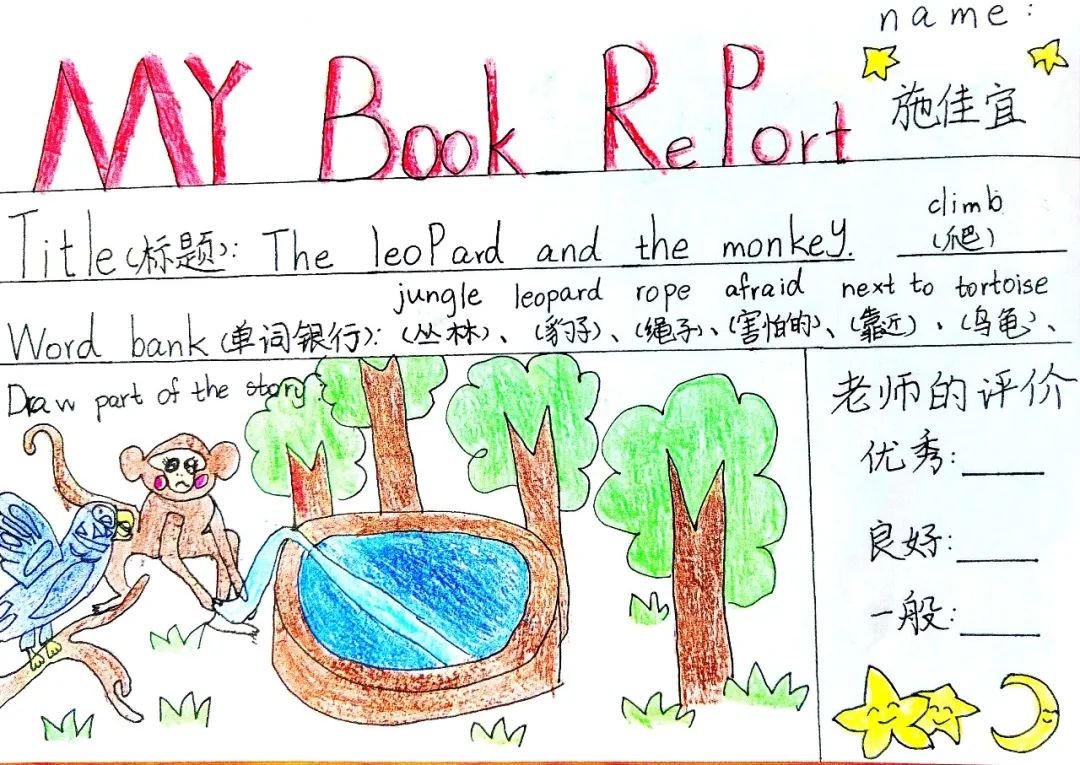 name:
MY Book RePort
施佳宜
climb
Title(标题): The leoPard and the monkey. (爬)
jungle leopard rope afraid next to tortoise
Word bank(单词银行): (丛林)、(豹子)、(绳子)、(害怕的)、(靠近)、(乌龟)、
Draw part of the story:
老师的评价
优秀:
良好:
一般: